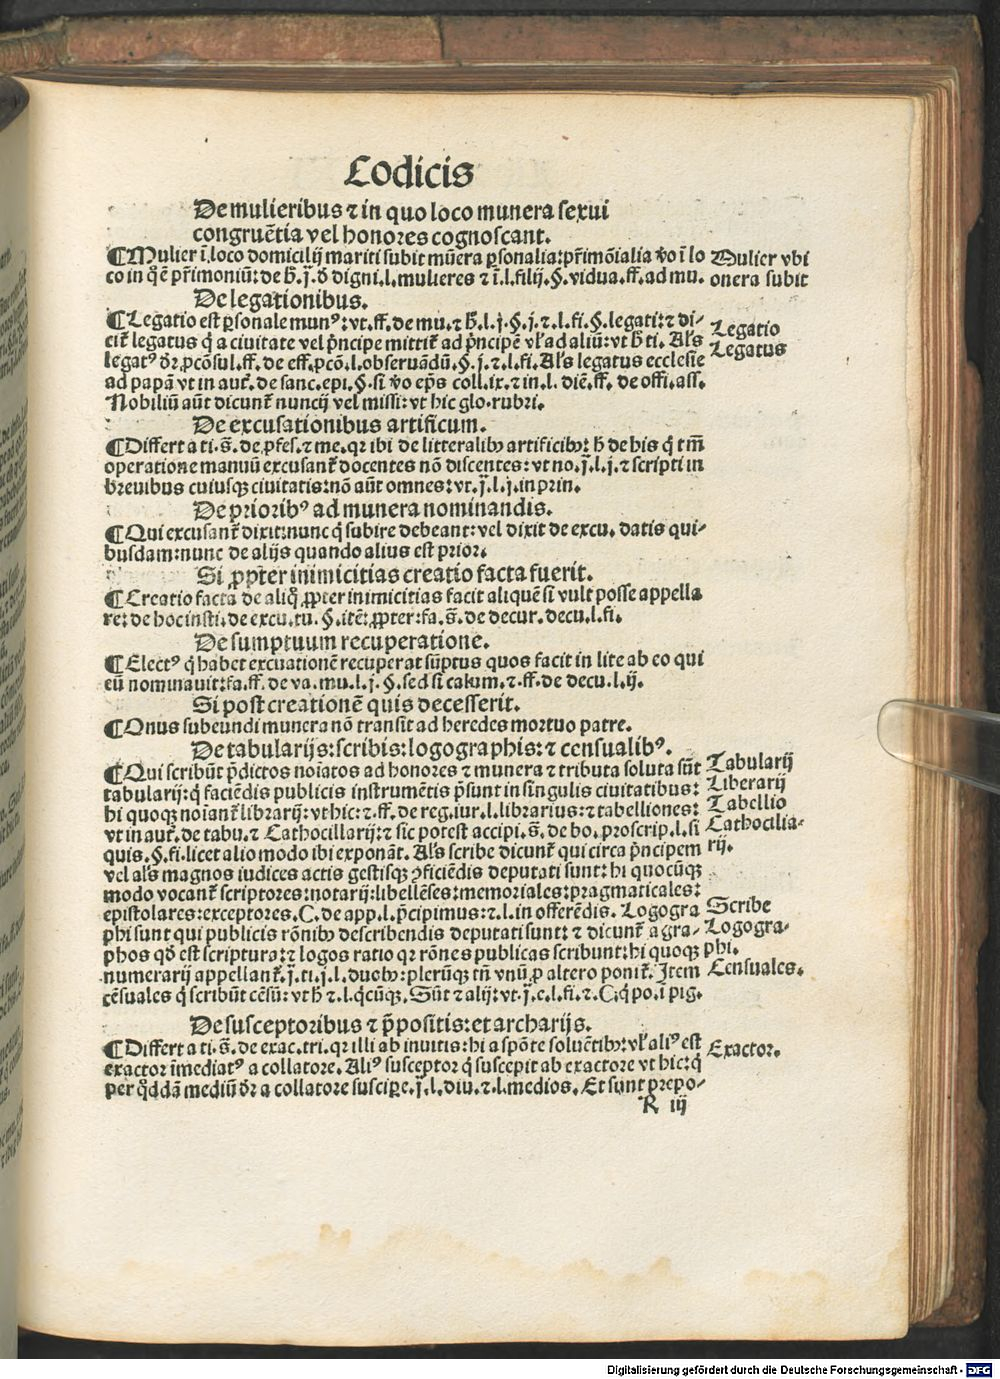 Codicis
De mulieribus ⁊ in quo loco munera sexui
congruẽtia vel honores cognoscant.
¶Mulier ĩ loco domicilij mariti subit mũera ꝑsonalia: pr̃imõialia v̾o ĩ lo
co in q̃ẽ pr̃imoniũ: de h̃.j̃.ð digni.l.mulieres ⁊ ĩ.l.filij.§.vidua.ff.ad mu.
Mulier vbi
onera subit
De legationibus.
¶Legatio est ꝑsonale munꝰ: vt.ff.de mu.⁊ h̃.l.j.§.j.⁊.l.fi.§.legati: ⁊ di-
cit̃ legatus q̃ a ciuitate vel p̃ncipe mittit̃ ad p̃ncipẽ vl̾ ad aliũ: vt h̃ ti. Al̾s
legatꝰ dr̃ ꝓcõsul.ff.de off.ꝓcõ.l.obseruãdũ.§.j.⁊.l.fi. Al̾s legatus ecclesie
ad papã vt in aut̃.de sanc.epi.§.si v̾o ep̃s coll.ix.⁊ in.l.diẽ.ff. de offi.ass.
Nobiliũ aũt dicunt̃ nuncij vel missi: vt hic glo.rubri.
Legatio
Legatus
De excusationibus artificum.
¶Differt a ti.s̃.de ꝓfes.⁊ me.qr ibi de litteralibꝫ artificibꝫ: h̃ de his q̃ tm̃
operatione manuũ excusant̃ docentes nõ discentes: vt no.j̃.l.j.⁊ scripti in
breuibus cuiusqꝫ ciuitatis: nõ aũt omnes: vt.j̃.l.j.in prin.
De prioribꝰ ad munera nominandis.
¶Qui excusant̃ dixit: nunc q̃ subire debeant: vel dixit de excu. datis qui-
busdam: nunc de alijs quando alius est prior.
Si ꝓpter inimicitias creatio facta fuerit.
¶Creatio facta de aliq̃ ꝓpter inimicitias facit aliquẽ si vult posse appella
re: de hoc insti.de excu.tu.§.itẽ: ꝓpter: fa.s̃.de decur.decu.l.fi.
De sumptuum recuperatione.
¶Electꝰ q̃ habet excuationẽ recuperat sũptus quos facit in lite ab eo qui
eũ nominauit: fa.ff.de va.mu.l.j.§.sed si calum.⁊.ff.de decu.l.ij.
Si post creationẽ quis decesserit.
¶Onus subeundi munera nõ transit ad heredes mortuo patre.
De tabularijs: scribis: logographis: ⁊ censualibꝰ.
¶Qui scribũt p̃dictos noĩatos ad honores ⁊ munera ⁊ tributa soluta sũt
tabularij: q̃ faciẽdis publicis instrumẽtis p̃sunt in singulis ciuitatibus:
hi quoqꝫ noĩant̃ librarij: vt hic: ⁊.ff.de reg.iur.l.librarius: ⁊ tabelliones:
vt in aut̃.de tabu.⁊ Cathocillarij: ⁊ sic potest accipi.s̃.de bo.proscrip.l.si
quis.§.fi.licet alio modo ibi exponãt. Al̾s scribe dicunt̃ qui circa p̃ncipem
vel al̾s magnos iudices actis gestisqꝫ ꝯficiẽdis deputati sunt: hi quocũqꝫ
modo vocant̃ scriptores: notarij: libellẽses: memoriales: pragmaticales:
epistolares: exceptores.C.de app.l.p̃cipimus: ⁊.l.in offerẽdis. Logogra
phi sunt qui publicis rõnibꝫ describendis deputati sunt: ⁊ dicunt̃ a gra-
phos qð est scriptura: ⁊ logos ratio qr rõnes publicas scribunt: hi quoqꝫ
numerarij appellant̃.j̃.ti.j.l.duobꝫ: plerũqꝫ tñ vnũ ꝓ altero ponit̃. Item
cẽsuales q̃ scribũt cẽsũ: vt h̃ ⁊.l.qcũqꝫ. Sũt ⁊ alij: vt.j̃.e.l.fi.⁊.C.q̃ po.ĩ pig.
Tabularij
Liberarij
Tabellio
Cathocilia-
rij.
Scribe
Logogra-
phi.
Censuales.
De susceptoribus ⁊ p̃positis: et archarijs.
¶Differt a ti.s̃.de exac.tri.qr illi ab inuitis: hi a spõte soluẽtibꝫ: vl̾ aliꝰ est
exactor ĩmediatꝰ a collatore. Aliꝰ susceptor q̃ suscepit ab exactore vt hic: q̃
per q̃ddã mediũ dr̃ a collatore suscipe.j̃.l.diu.⁊.l.medios. Et sunt prepo-
Exactor.
R iij
Digitalisierung gefördert durch die Deutsche Forschungsgemeinschaft - DFG